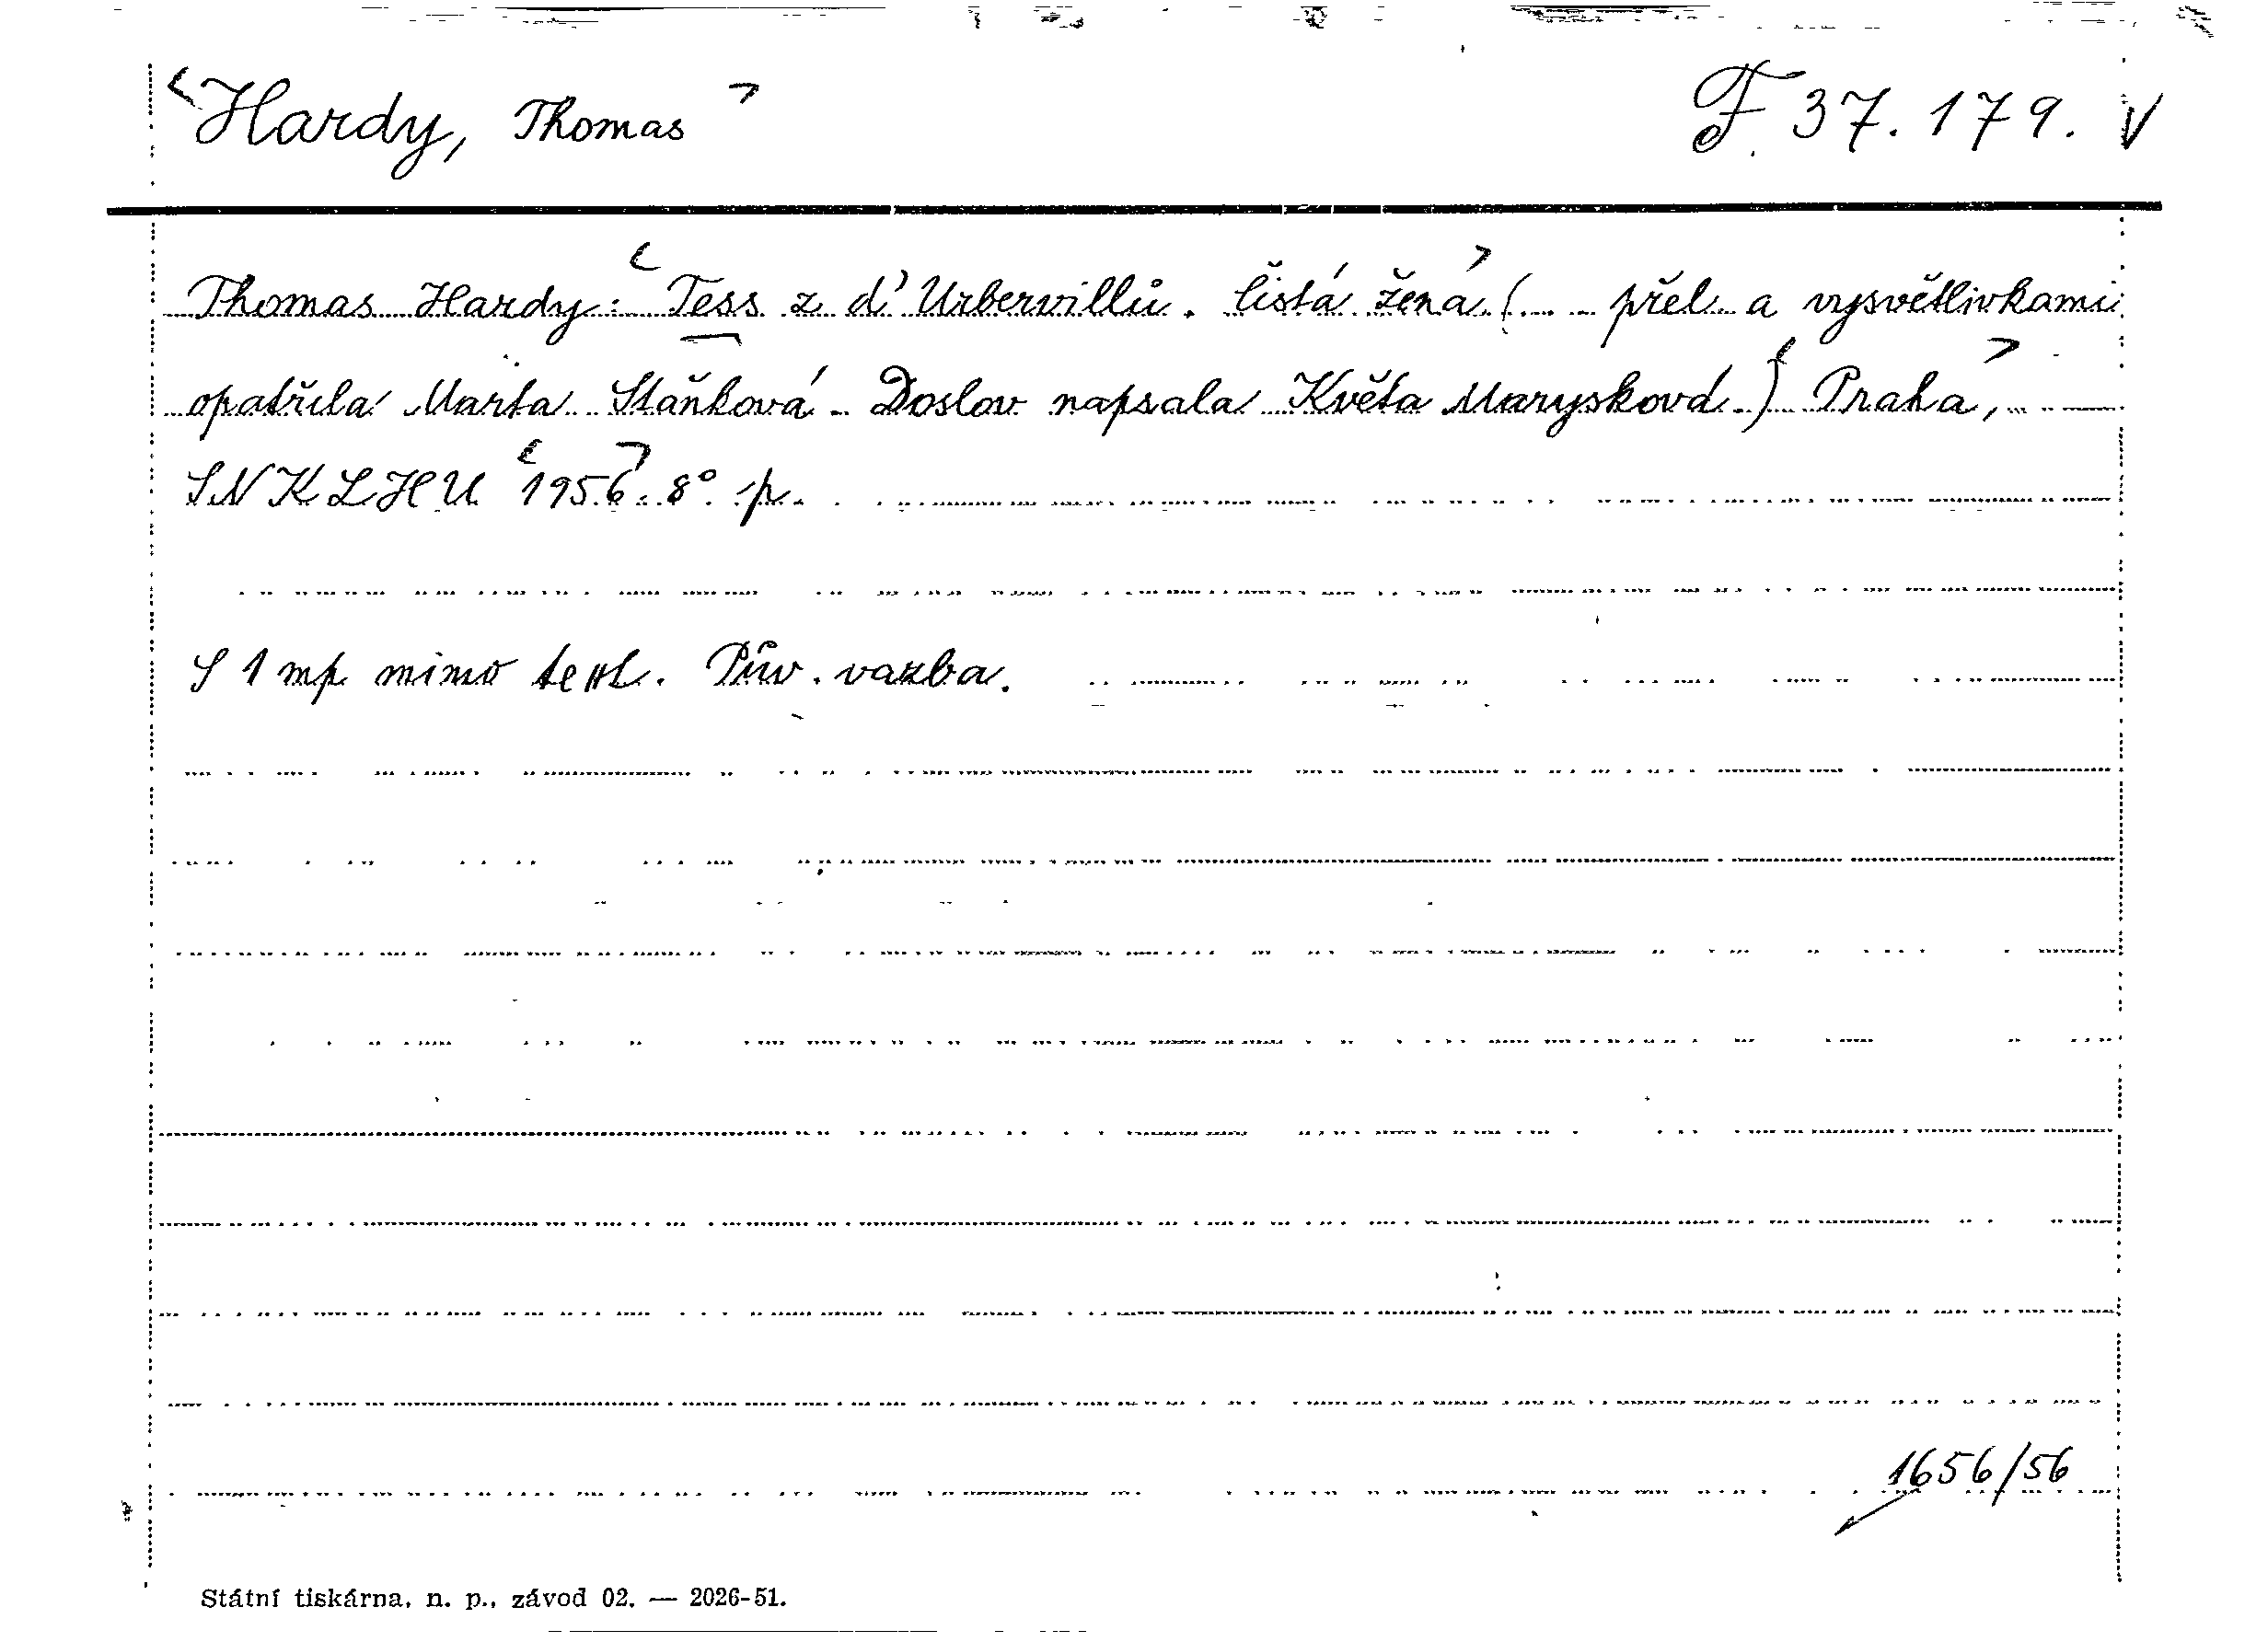 Hardy, Thomas F 37.179. V
Thomas Hardy: Tess z d'Urbervillů. Čistá žena (... přel. a vysvětlivkami
opatřila Marta Staňková - Doslov napsala Květa Marysková.) Praha,
SNKLHU 1956. 8°. p.
S 1 mp mimo text. Pův. vazba.
1656/56
Státní tiskárna, n. p., závod 02. — 2026-51.